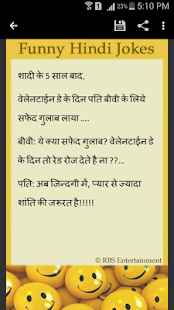 5:10 PM
Funny Hindi Jokes
शादी के 5 साल बाद,
वेलेनटाईन डे के दिन पति बीवी के लिये
सफेद गुलाब लाया ....
बीवी: ये क्या सफेद गुलाब? वेलेनटाईन डे
के दिन तो रेड रोज देते है ना ??...
पति: अब जिन्दगी में, प्यार से ज्यादा
शांति की जरूरत है!!!!!
© RBS Entertainment